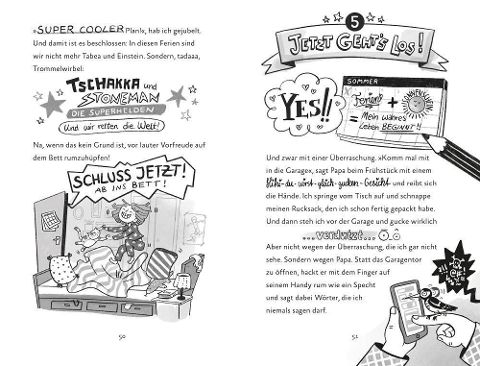 »SUPER COOLER Plan!«, hab ich gejubelt.
Und damit ist es beschlossen: In diesen Ferien sind
wir nicht mehr Tabea und Einstein. Sondern, tadaaa,
Trommelwirbel:
TSCHAKKA und
STONEMAN
DIE SUPERHELDEN
Und wir retten die Welt!
Na, wenn das kein Grund ist, vor lauter Vorfreude auf
dem Bett rumzuhüpfen!
SCHLUSS JETZT!
AB INS BETT!
50
5
JETZT GEHT'S LOS!
YES!!
SOMMER
Ferien +
= Mein wahres
Leben BEGINNT!!
Und zwar mit einer Überraschung. »Komm mal mit
in die Garage«, sagt Papa beim Frühstück mit einem
Siehst-du-wirst-gleich-gucken-Gesicht und reibt sich
die Hände. Ich springe vom Tisch auf und schnappe
meinen Rucksack, den ich schon fertig gepackt habe.
Und dann steh ich vor der Garage und gucke wirklich
...verdutzt...
Aber nicht wegen der Überraschung, die ich gar nicht
sehe. Sondern wegen Papa. Statt das Garagentor
zu öffnen, hackt er mit dem Finger auf
seinem Handy rum wie ein Specht
und sagt dabei Wörter, die ich
niemals sagen darf.
51